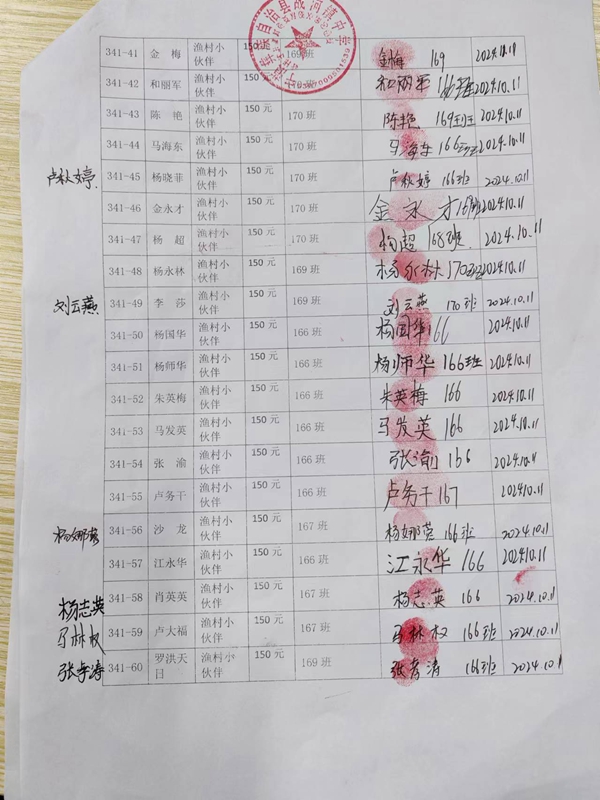 自治县战河镇中学
341-41 金 梅 渔村小伙伴 150元 169班 金梅 169 2024.10.11
341-42 和丽军 渔村小伙伴 150元 和丽军 166班 2024.10.11
341-43 陈 艳 渔村小伙伴 150元 170班 陈艳 169班 2024.10.11
341-44 马海东 渔村小伙伴 150元 170班 马海东 166班 2024.10.11
卢秋婷 341-45 杨晓菲 渔村小伙伴 150元 170班 卢秋婷 166班 2024.10.11
341-46 金永才 渔村小伙伴 150元 170班 金永才 2024.10.11
341-47 杨 超 渔村小伙伴 150元 170班 杨超 168班 2024.10.11
341-48 杨永林 渔村小伙伴 150元 169班 杨永林 170班 2024.10.11
刘云燕 341-49 李 莎 渔村小伙伴 150元 169班 刘云燕 170班 2024.10.11
341-50 杨国华 渔村小伙伴 150元 166班 杨国华 166 2024.10.11
341-51 杨师华 渔村小伙伴 150元 166班 杨师华 166班 2024.10.11
341-52 朱英梅 渔村小伙伴 150元 166班 朱英梅 166 2024.10.11
341-53 马发英 渔村小伙伴 150元 166班 马发英 166 2024.10.11
341-54 张 渝 渔村小伙伴 150元 166班 张渝 166 2024.10.11
341-55 卢务干 渔村小伙伴 150元 166班 卢务干 167 2024.10.11
杨娜蓉 341-56 沙 龙 渔村小伙伴 150元 167班 杨娜蓉 166班 2024.10.11
341-57 江永华 渔村小伙伴 150元 166班 江永华 166 2024.10.11
杨志英 341-58 肖英英 渔村小伙伴 150元 167班 杨志英 166 2024.10.11
马林权 341-59 卢大福 渔村小伙伴 150元 167班 马林权 166班 2024.10.11
张孝涛 341-60 罗洪天日 渔村小伙伴 150元 169班 张孝涛 166班 2024.10.11